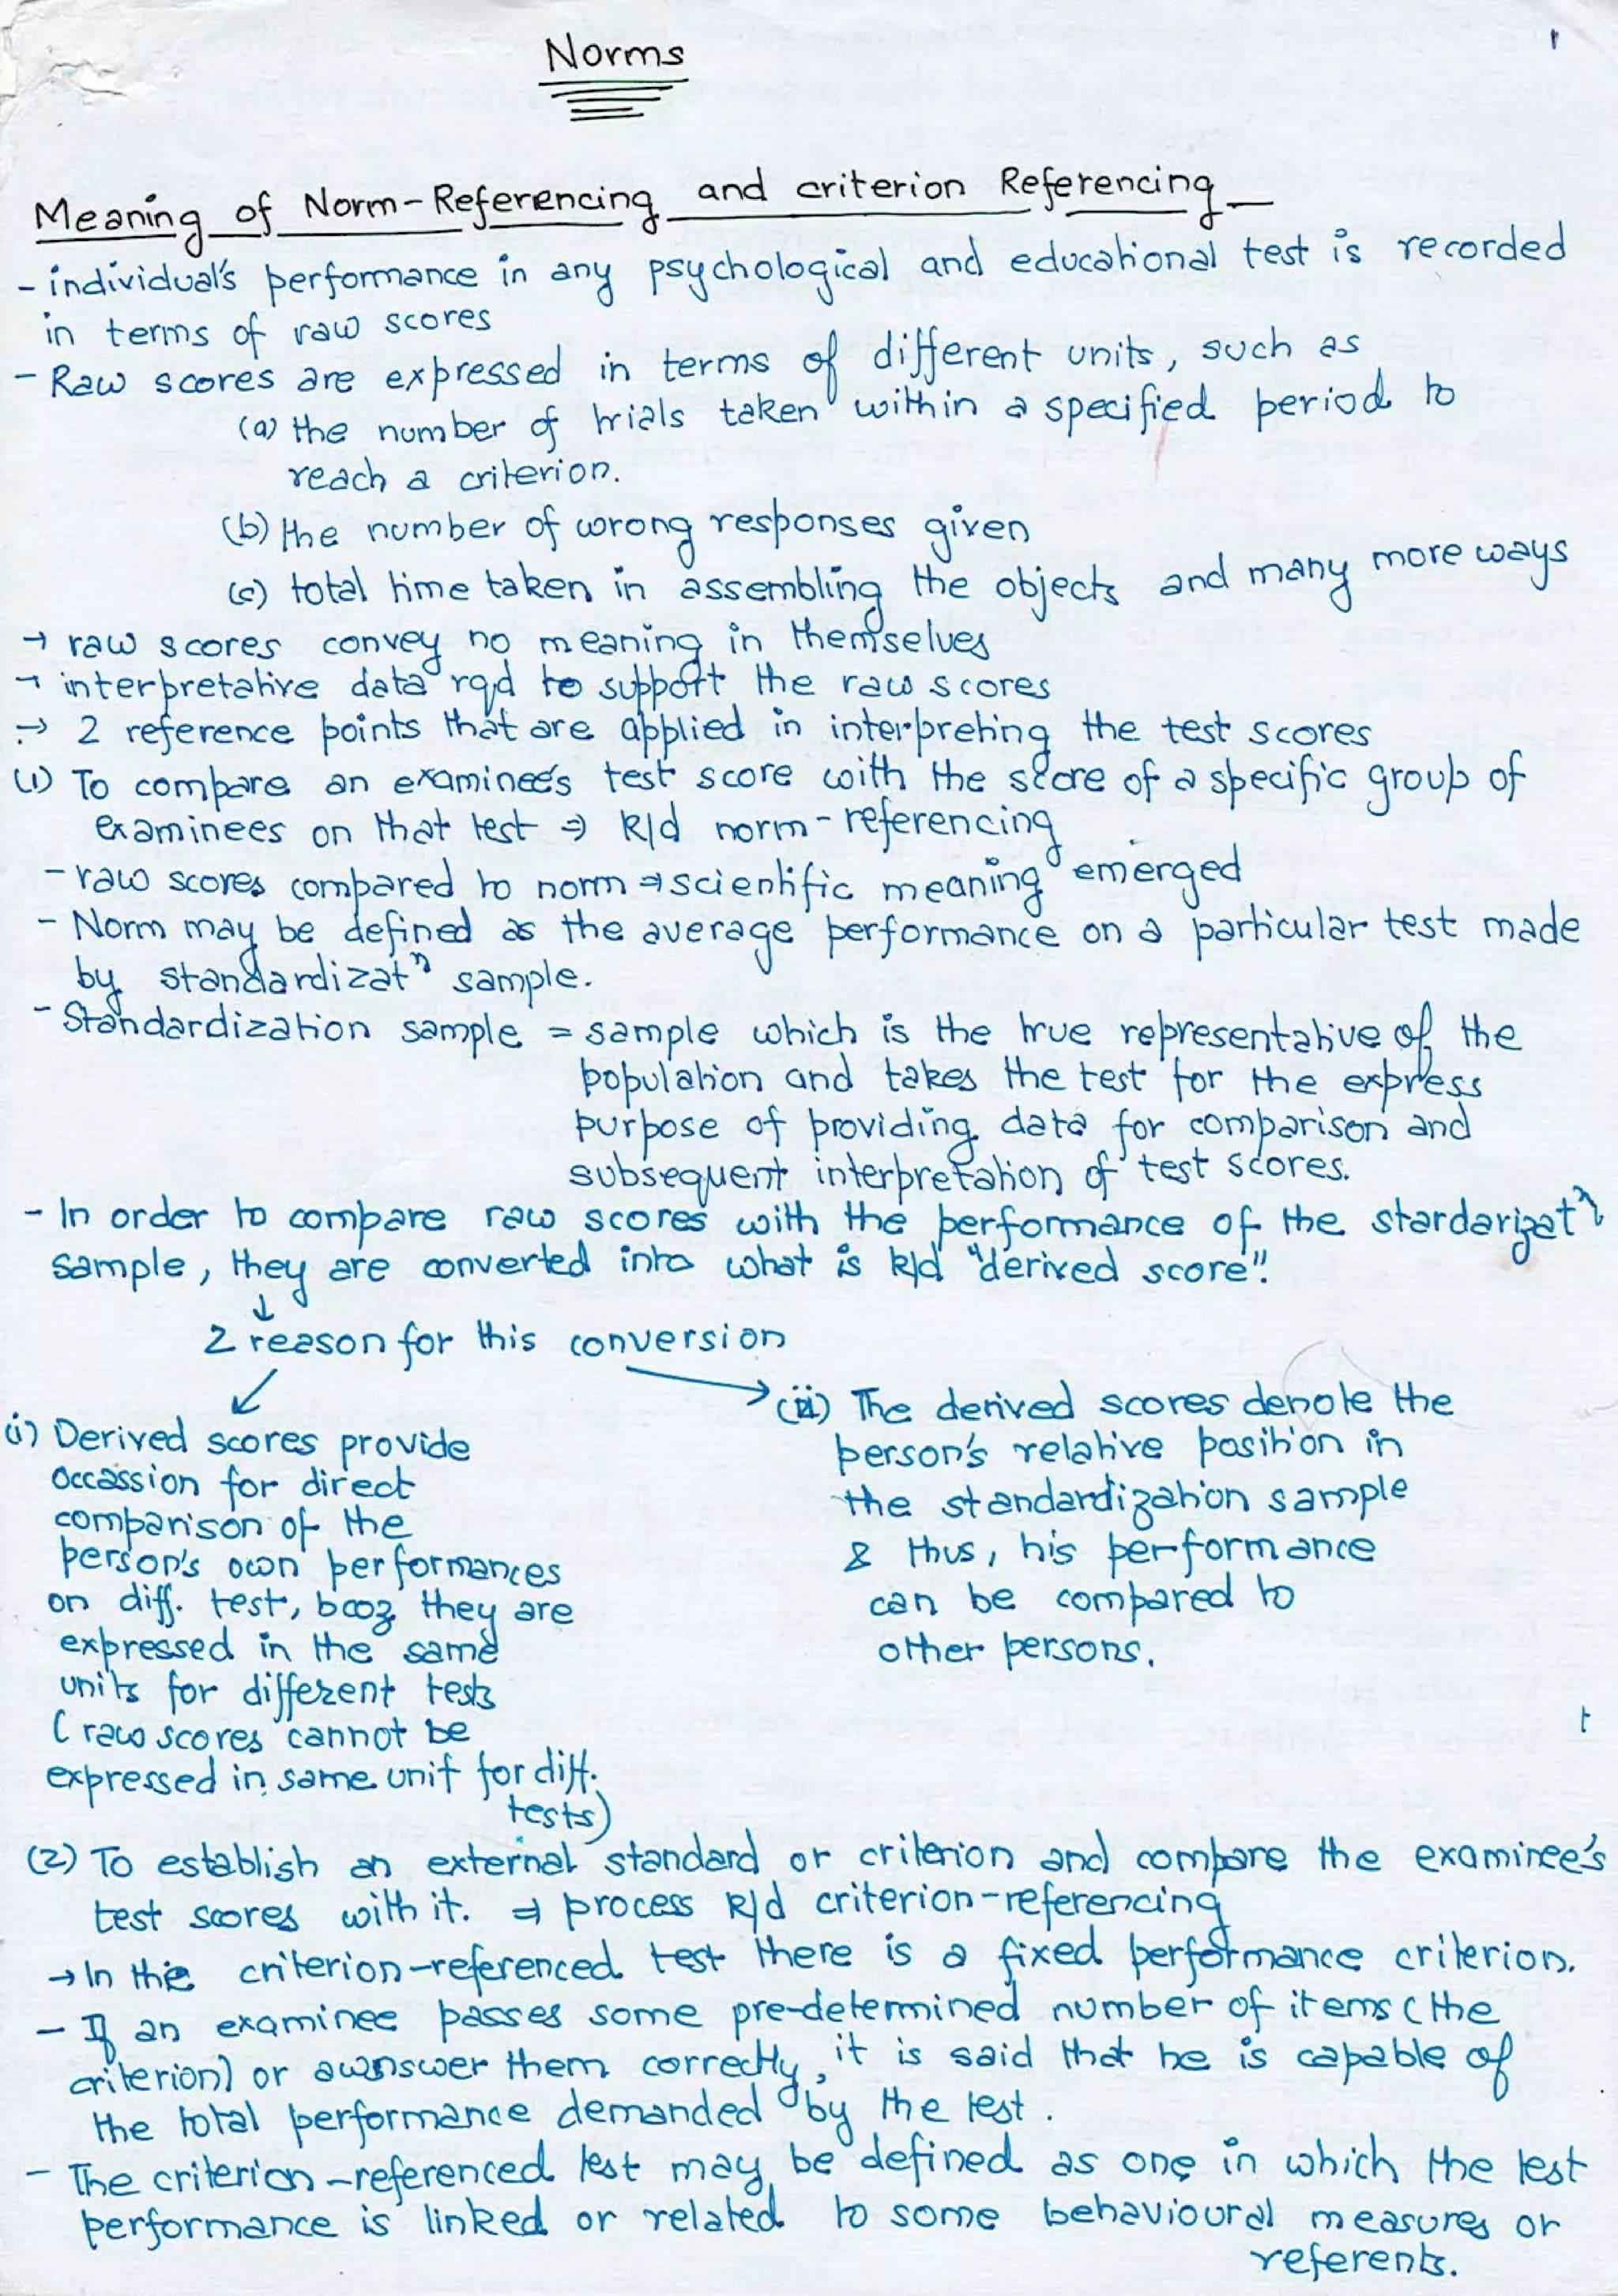 Norms
1
Meaning of Norm-Referencing and criterion Referencing
- individual's performance in any psychological and educational test is recorded
in terms of raw scores
- Raw scores are expressed in terms of different units, such as
(a) the number of trials taken within a specified period to
reach a criterion.
(b) the number of wrong responses given
(c) total time taken in assembling the objects and many more ways
→ raw scores convey no meaning in themselves
→ interpretative data rqd to support the raw scores
→ 2 reference points that are applied in interpreting the test scores
(1) To compare an examinee's test score with the score of a specific group of
examinees on that test ⇒ k/d norm-referencing
- raw scores compared to norm ⇒ scientific meaning emerged
- Norm may be defined as the average performance on a particular test made
by standardizatⁿ sample.
- Standardization sample = sample which is the true representative of the
population and takes the test for the express
purpose of providing data for comparison and
subsequent interpretation of test scores.
- In order to compare raw scores with the performance of the stardarizatⁿ
sample, they are converted into what is k/d "derived score".
↓
2 reason for this conversion
(i) Derived scores provide
occassion for direct
comparison of the
person's own performances
on diff. test, bcoz they are
expressed in the same
units for different tests
(raw scores cannot be
expressed in same unit for diff.
tests)
(ii) The derived scores denote the
person's relative position in
the standardization sample
& thus, his performance
can be compared to
other persons.
t
(2) To establish an external standard or criterion and compare the examinee's
test scores with it. ⇒ process k/d criterion-referencing
→ In the criterion-referenced test there is a fixed performance criterion.
- If an examinee passes some pre-determined number of items (the
criterion) or awnswer them correctly, it is said that he is capable of
the total performance demanded by the test.
- The criterion-referenced test may be defined as one in which the test
performance is linked or related to some behavioural measures or
referents.